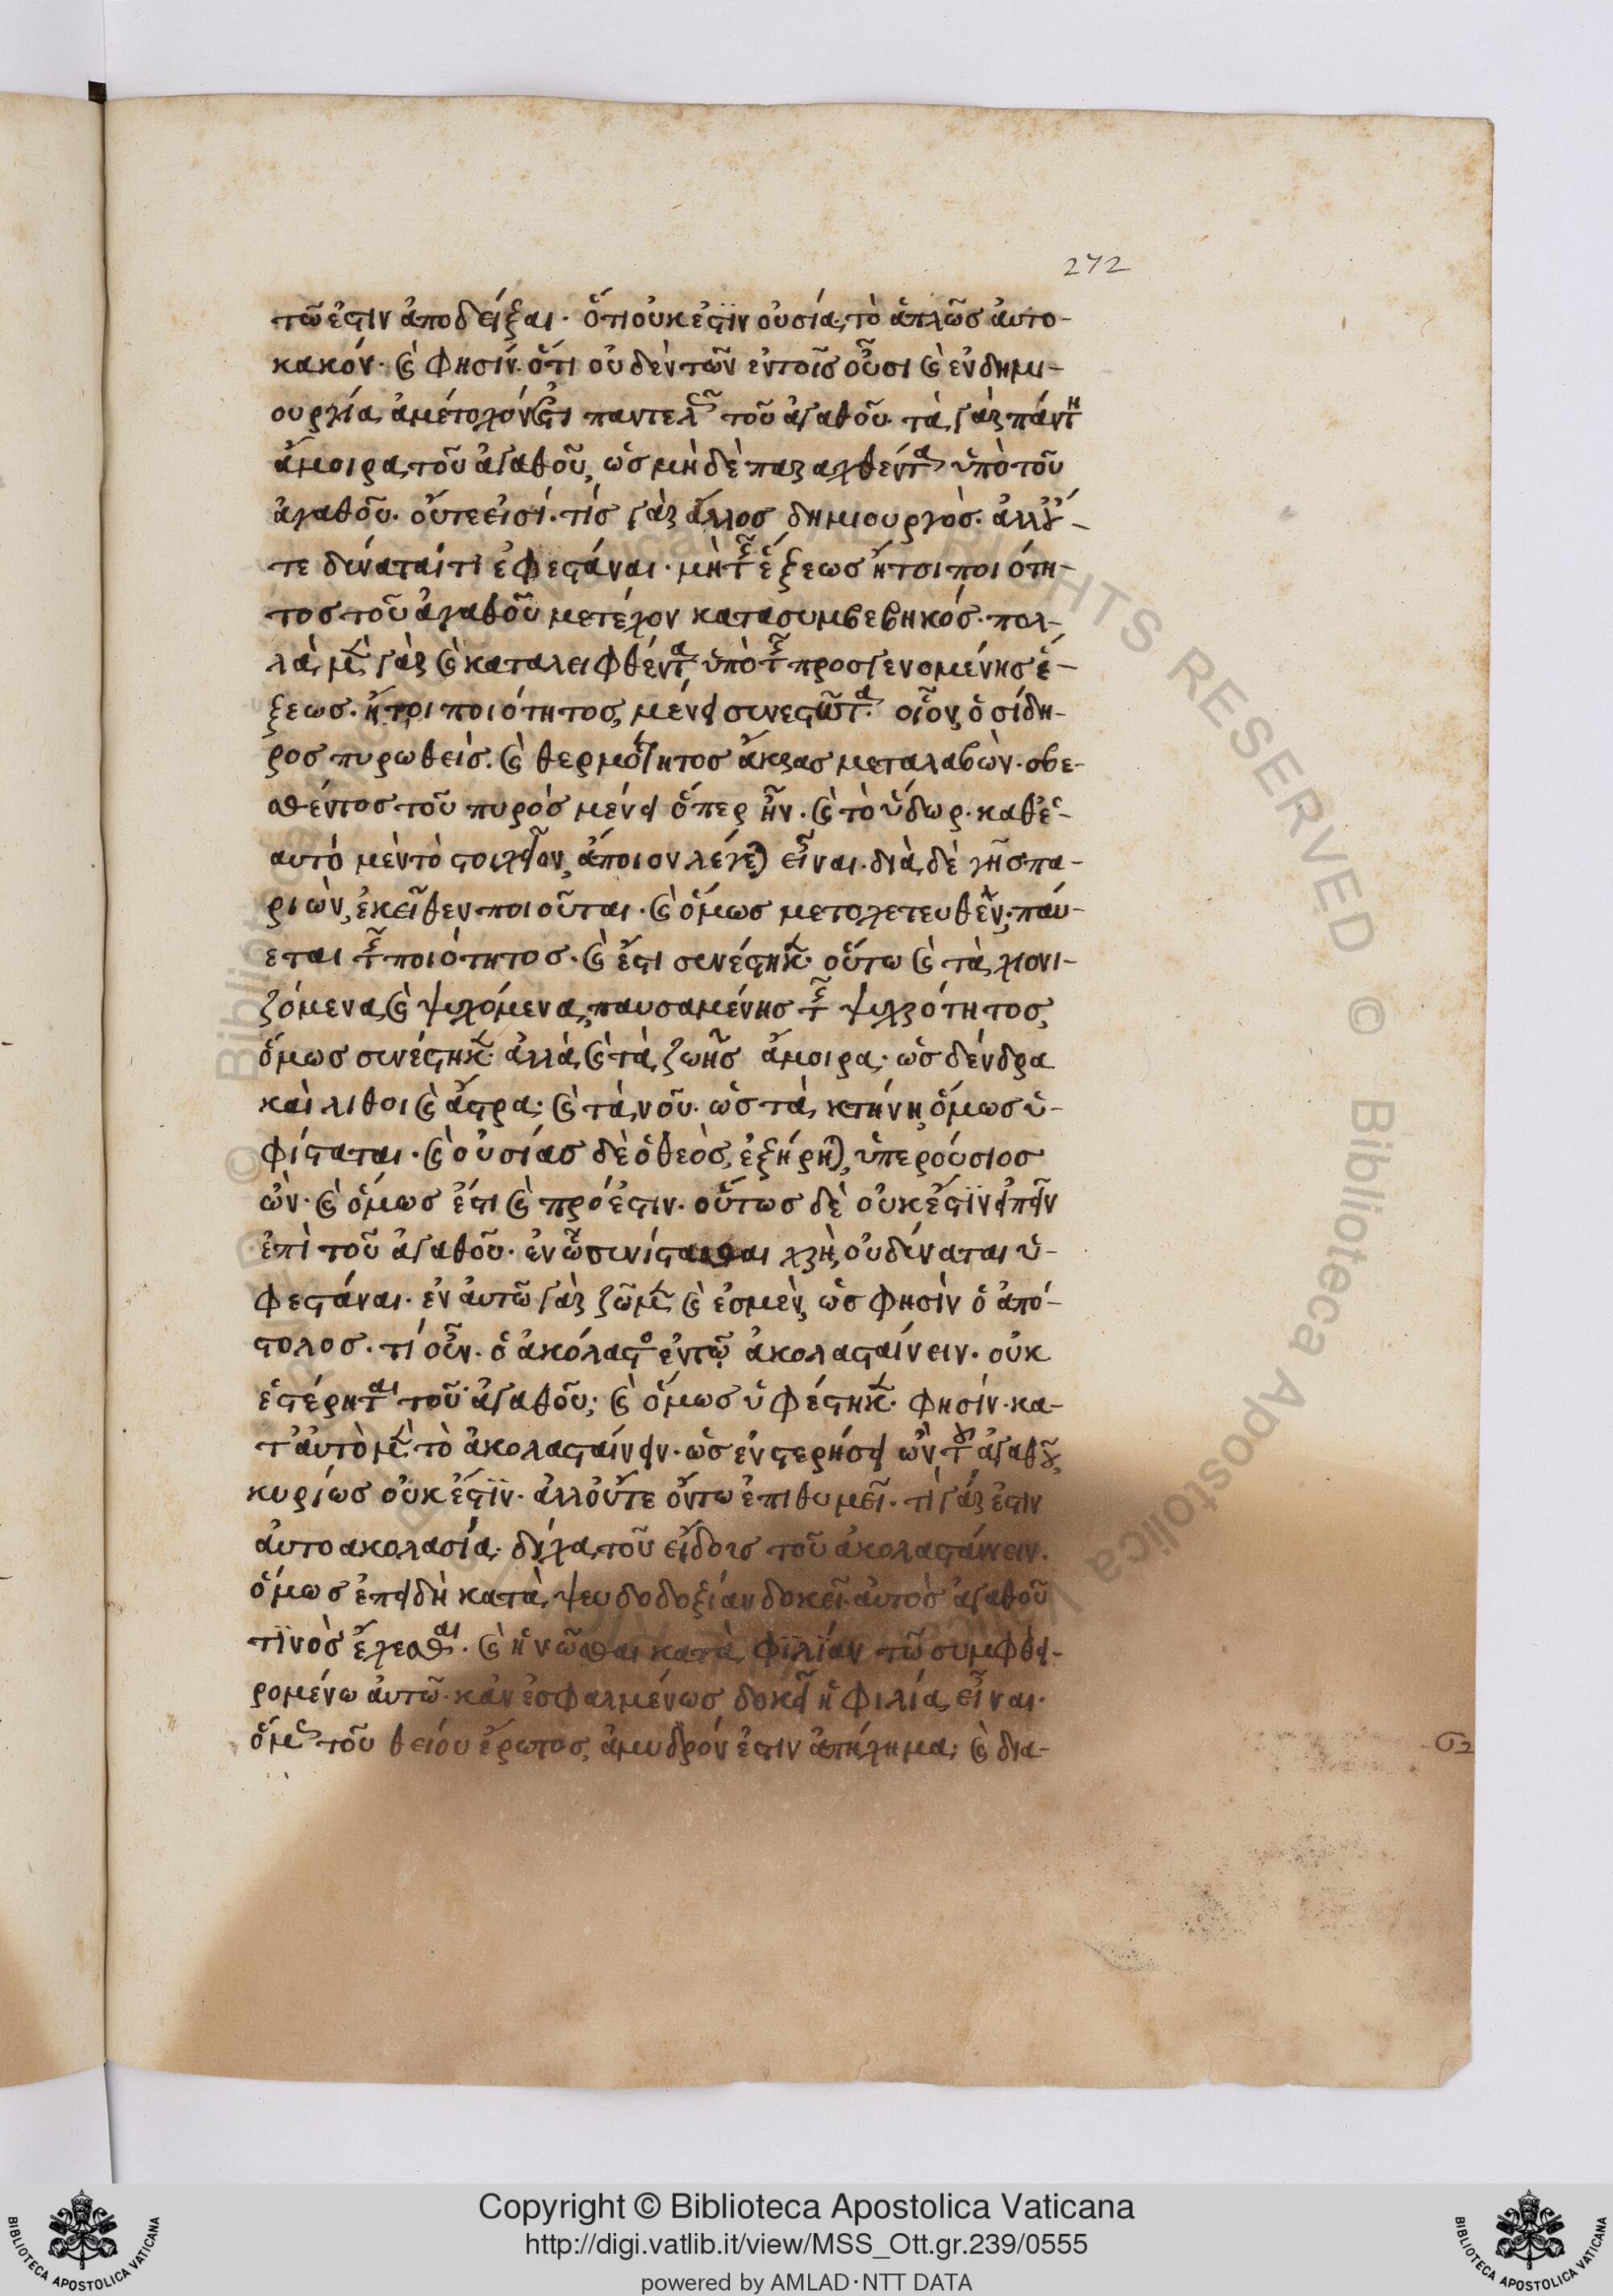 272
τῶ ἐστιν ἀποδεῖξαι· ὅτι οὐκ ἔστιν οὐσία, τὸ ἁπλῶς ἀυτο-
κακόν· καὶ φησίν· ὅτι οὐδὲν τῶν ἐν τοῖς οὖσι καὶ ἐν δημι-
ουργία, ἀμέτοχόν ἐστι παντελῶς τοῦ ἀγαθοῦ· τὰ γὰρ πάντη
ἄμοιρα, τοῦ ἀγαθοῦ, ὡς μὴ δὲ παραχθέντα ὑπὸ τοῦ
ἀγαθοῦ· οὔτε εἰσί· τίς γὰρ ἄλλος δημιουργὸς· ἀλλ' οὔ-
τε δύναταί τι ἐφεστάναι· μὴ τῆς ἕξεως ἤτοι ποιότη-
τος τοῦ ἀγαθοῦ μετέχον κατα συμβεβηκός· πολ-
λὰ, μὲν γὰρ καὶ καταλειφθέντα, ὑπὸ τῆς προσγενομένης ἕ-
ξεως· ἤτοι ποιότητος, μένει συνεστῶτα· οἷον, ὁ σίδη-
ρος πυρωθεὶς· καὶ θερμότητος ἄκρας μεταλαβὼν· σβε-
σθέντος τοῦ πυρὸς μένει ὅπερ ἦν· καὶ τὸ ὕδωρ· καθ' ἑ-
αυτό μὲν τὸ στοιχεῖον, ἄποιον λέγεται εἶναι· διὰ, δὲ γῆς πα-
ριὼν, ἐκεῖθεν ποιοῦται· καὶ ὅμως μετοχετευθὲν, παύ-
εται τῆς ποιότητος· καὶ ἔτι συνέστηκεν· οὕτω καὶ τὰ, χιονι-
ζόμενα, καὶ ψυχόμενα, παυσαμένης τῆς ψυχρότητος,
ὅμως συνέστηκεν· ἀλλὰ, καὶ τὰ, ζωῆς ἄμοιρα· ὡς δένδρα
καὶ λιθοι καὶ ἄστρα· καὶ τὰ, νοῦ· ὡς τὰ, κτήνη, ὅμως ὑ-
φίσταται· καὶ οὐσίας δὲ ὁ θεὸς, ἐξήρηται, ὑπερούσιος
ὢν· καὶ ὅμως ἔστι καὶ πρόεστιν· οὕτως δὲ οὐκ ἔστιν εἰπεῖν
ἐπὶ τοῦ ἀγαθοῦ· ἐν ᾧ συνίστασθαι χρὴ, οὐ δύναται ὑ-
φεστάναι· ἐν ἀυτῶ γὰρ ζῶμεν καὶ ἐσμὲν, ὡς φησὶν ὁ ἀπό-
στολος· τί οὖν· ὁ ἀκόλαστος ἐν τῶ ἀκολασταίνειν· οὐκ
ἐστέρηται τοῦ ἀγαθοῦ; καὶ ὅμως ὑφέστηκεν· φησίν· κα-
τ' ἀυτὸ μὲν τὸ ἀκολασταίνειν· ὡς ἐν στερήσει ὢν τοῦ ἀγαθοῦ,
κυρίως οὐκ ἔστιν· ἀλλ' οὔτε ὄντω ἐπιθυμεῖ· τί γάρ ἐστιν
ἀυτοακολασία· δίχα, τοῦ εἴδους τοῦ ἀκολασταίνειν·
ὅμως ἐπειδὴ κατὰ, ψευδοδοξίαν δοκεῖ ἀυτὸς ἀγαθοῦ
τινὸς ἔχεσθαι· καὶ ἡνῶσθαι κατὰ, φιλίαν τῶ συμφθει-
ρομένω ἀυτῶ· κἀν ἐσφαλμένως δοκεῖ ἡ φιλία, εἶναι·
ὅμως τοῦ θείου ἔρωτος, ἀμυδρόν ἐστιν ἀπήχημα; καὶ δια-
© Biblioteca Apostolica Vaticana
ALL RIGHTS RESERVED
Copyright © Biblioteca Apostolica Vaticana
http://digi.vatlib.it/view/MSS_Ott.gr.239/0555
powered by AMLAD·NTT DATA
BIBLIOTECA APOSTOLICA VATICANA
BIBLIOTECA APOSTOLICA VATICANA